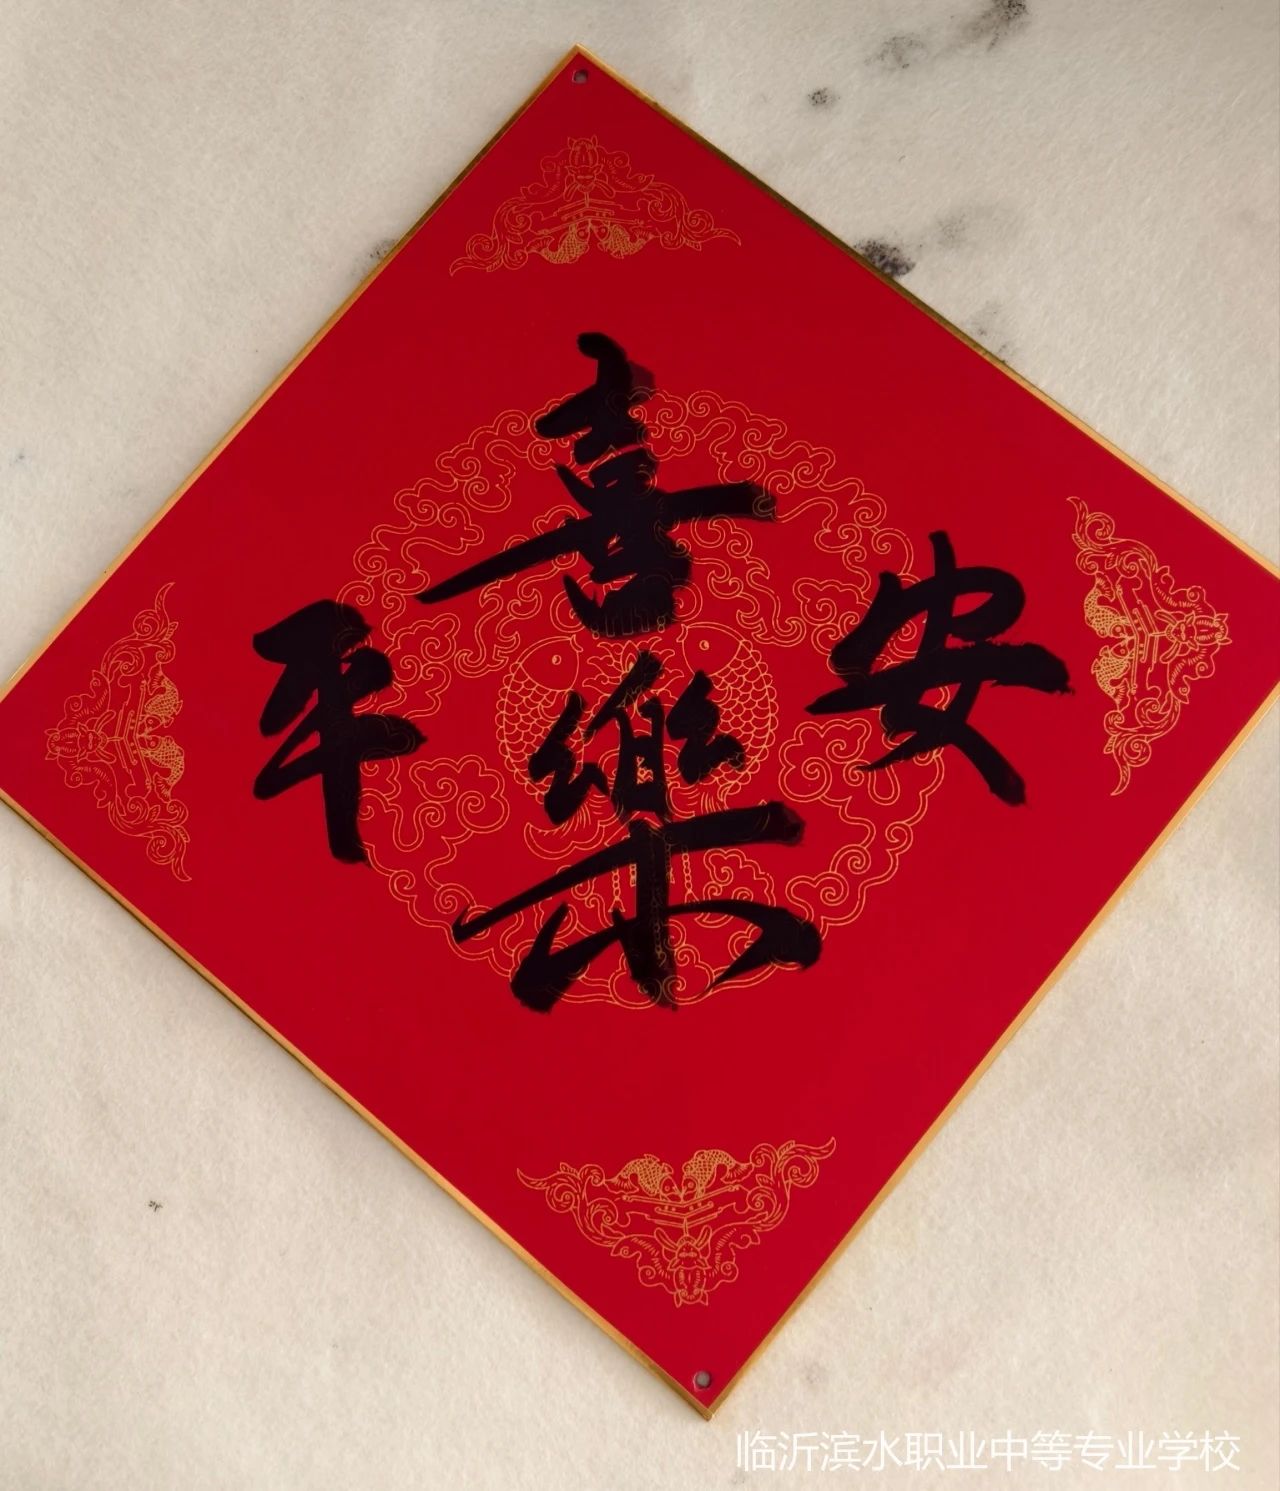 平安
喜樂
临沂滨水职业中等专业学校